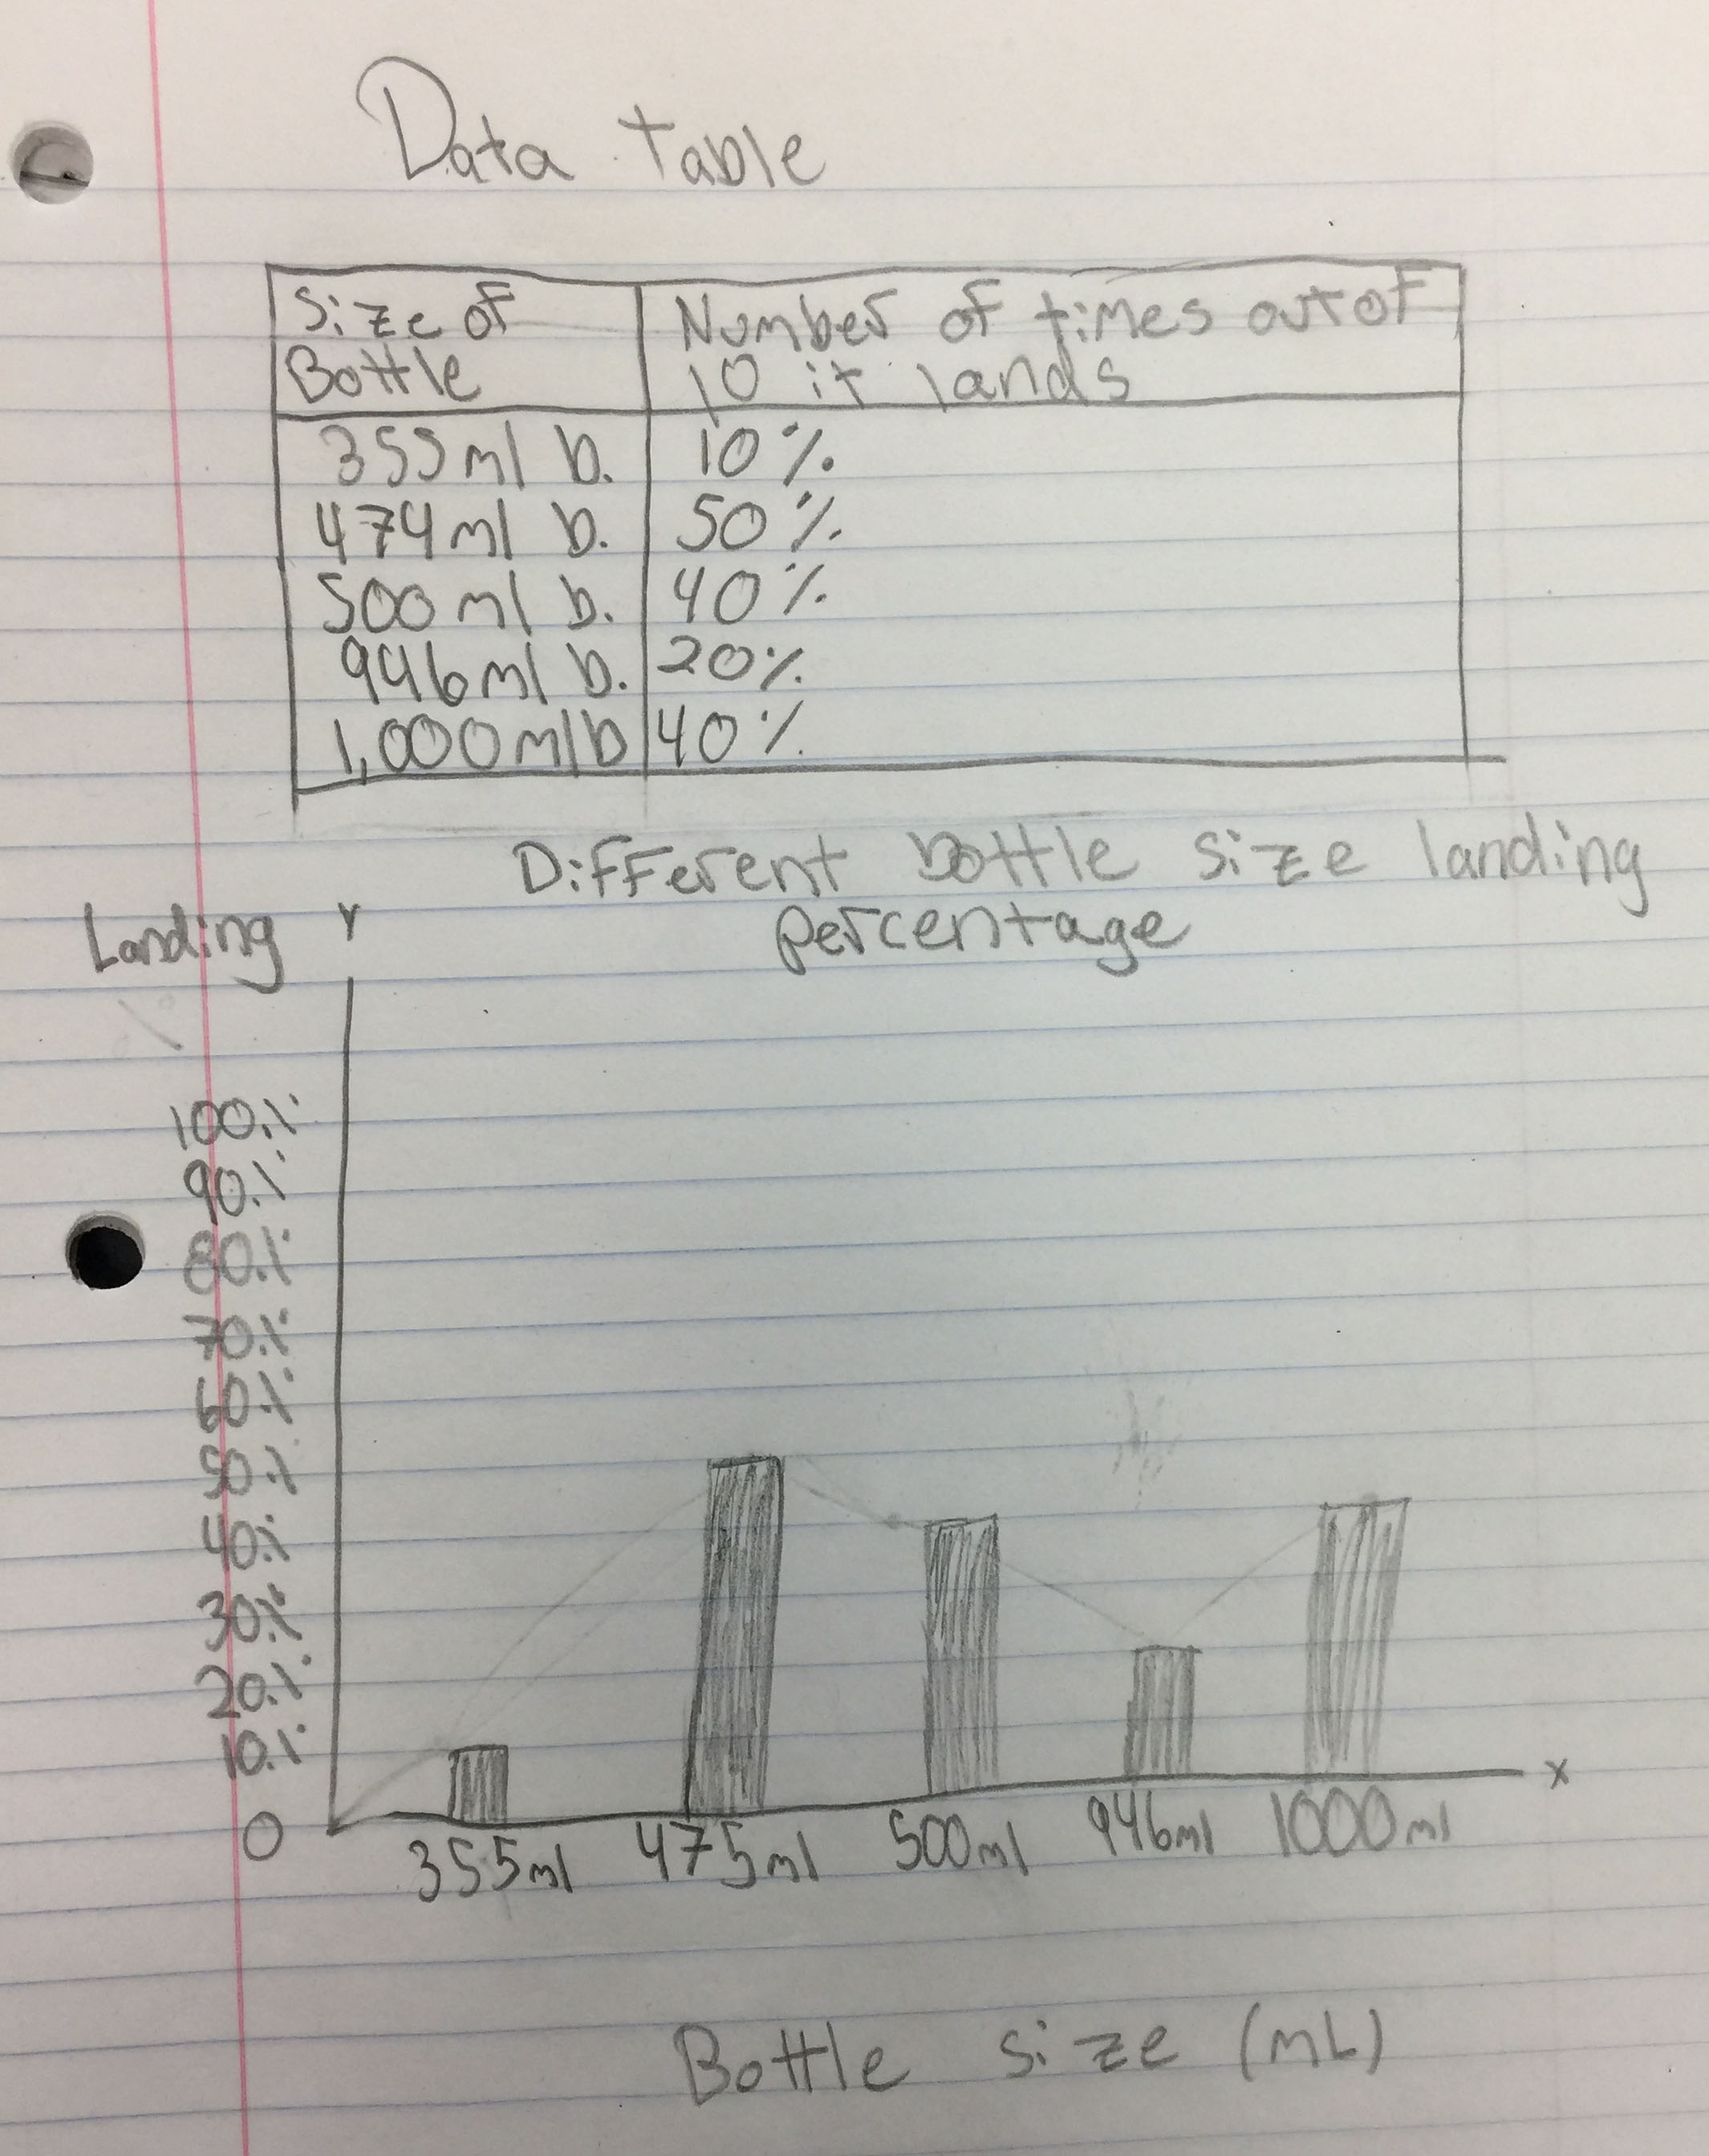 Data Table
Size of Bottle | Number of times out of 10 it lands
355ml b. | 10%
474ml b. | 50%
500ml b. | 40%
946ml b. | 20%
1,000ml b | 40%
Different bottle size landing
Percentage
Landing Y
100%
90%
80%
70%
60%
50%
40%
30%
20%
10%
0
x
355ml 475ml 500ml 946ml 1000ml
Bottle size (mL)